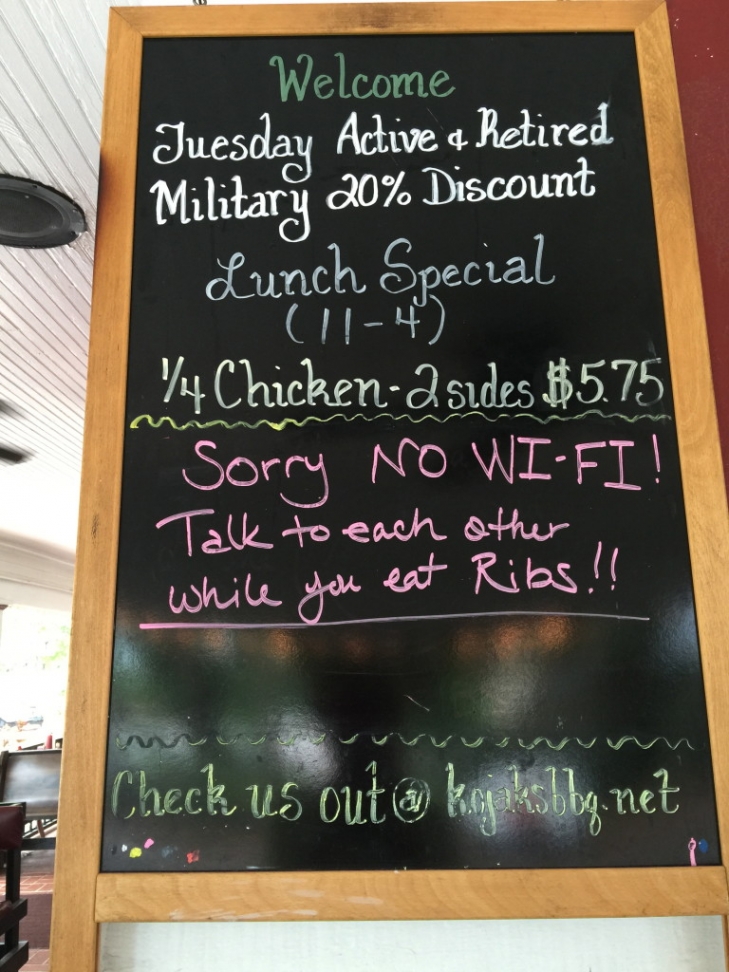 Welcome
Tuesday Active & Retired
Military 20% Discount
Lunch Special
(11-4)
1/4 Chicken - 2 sides $5.75
Sorry NO WI-FI!
Talk to each other
while you eat Ribs!!
Check us out @ kojaksbbq.net